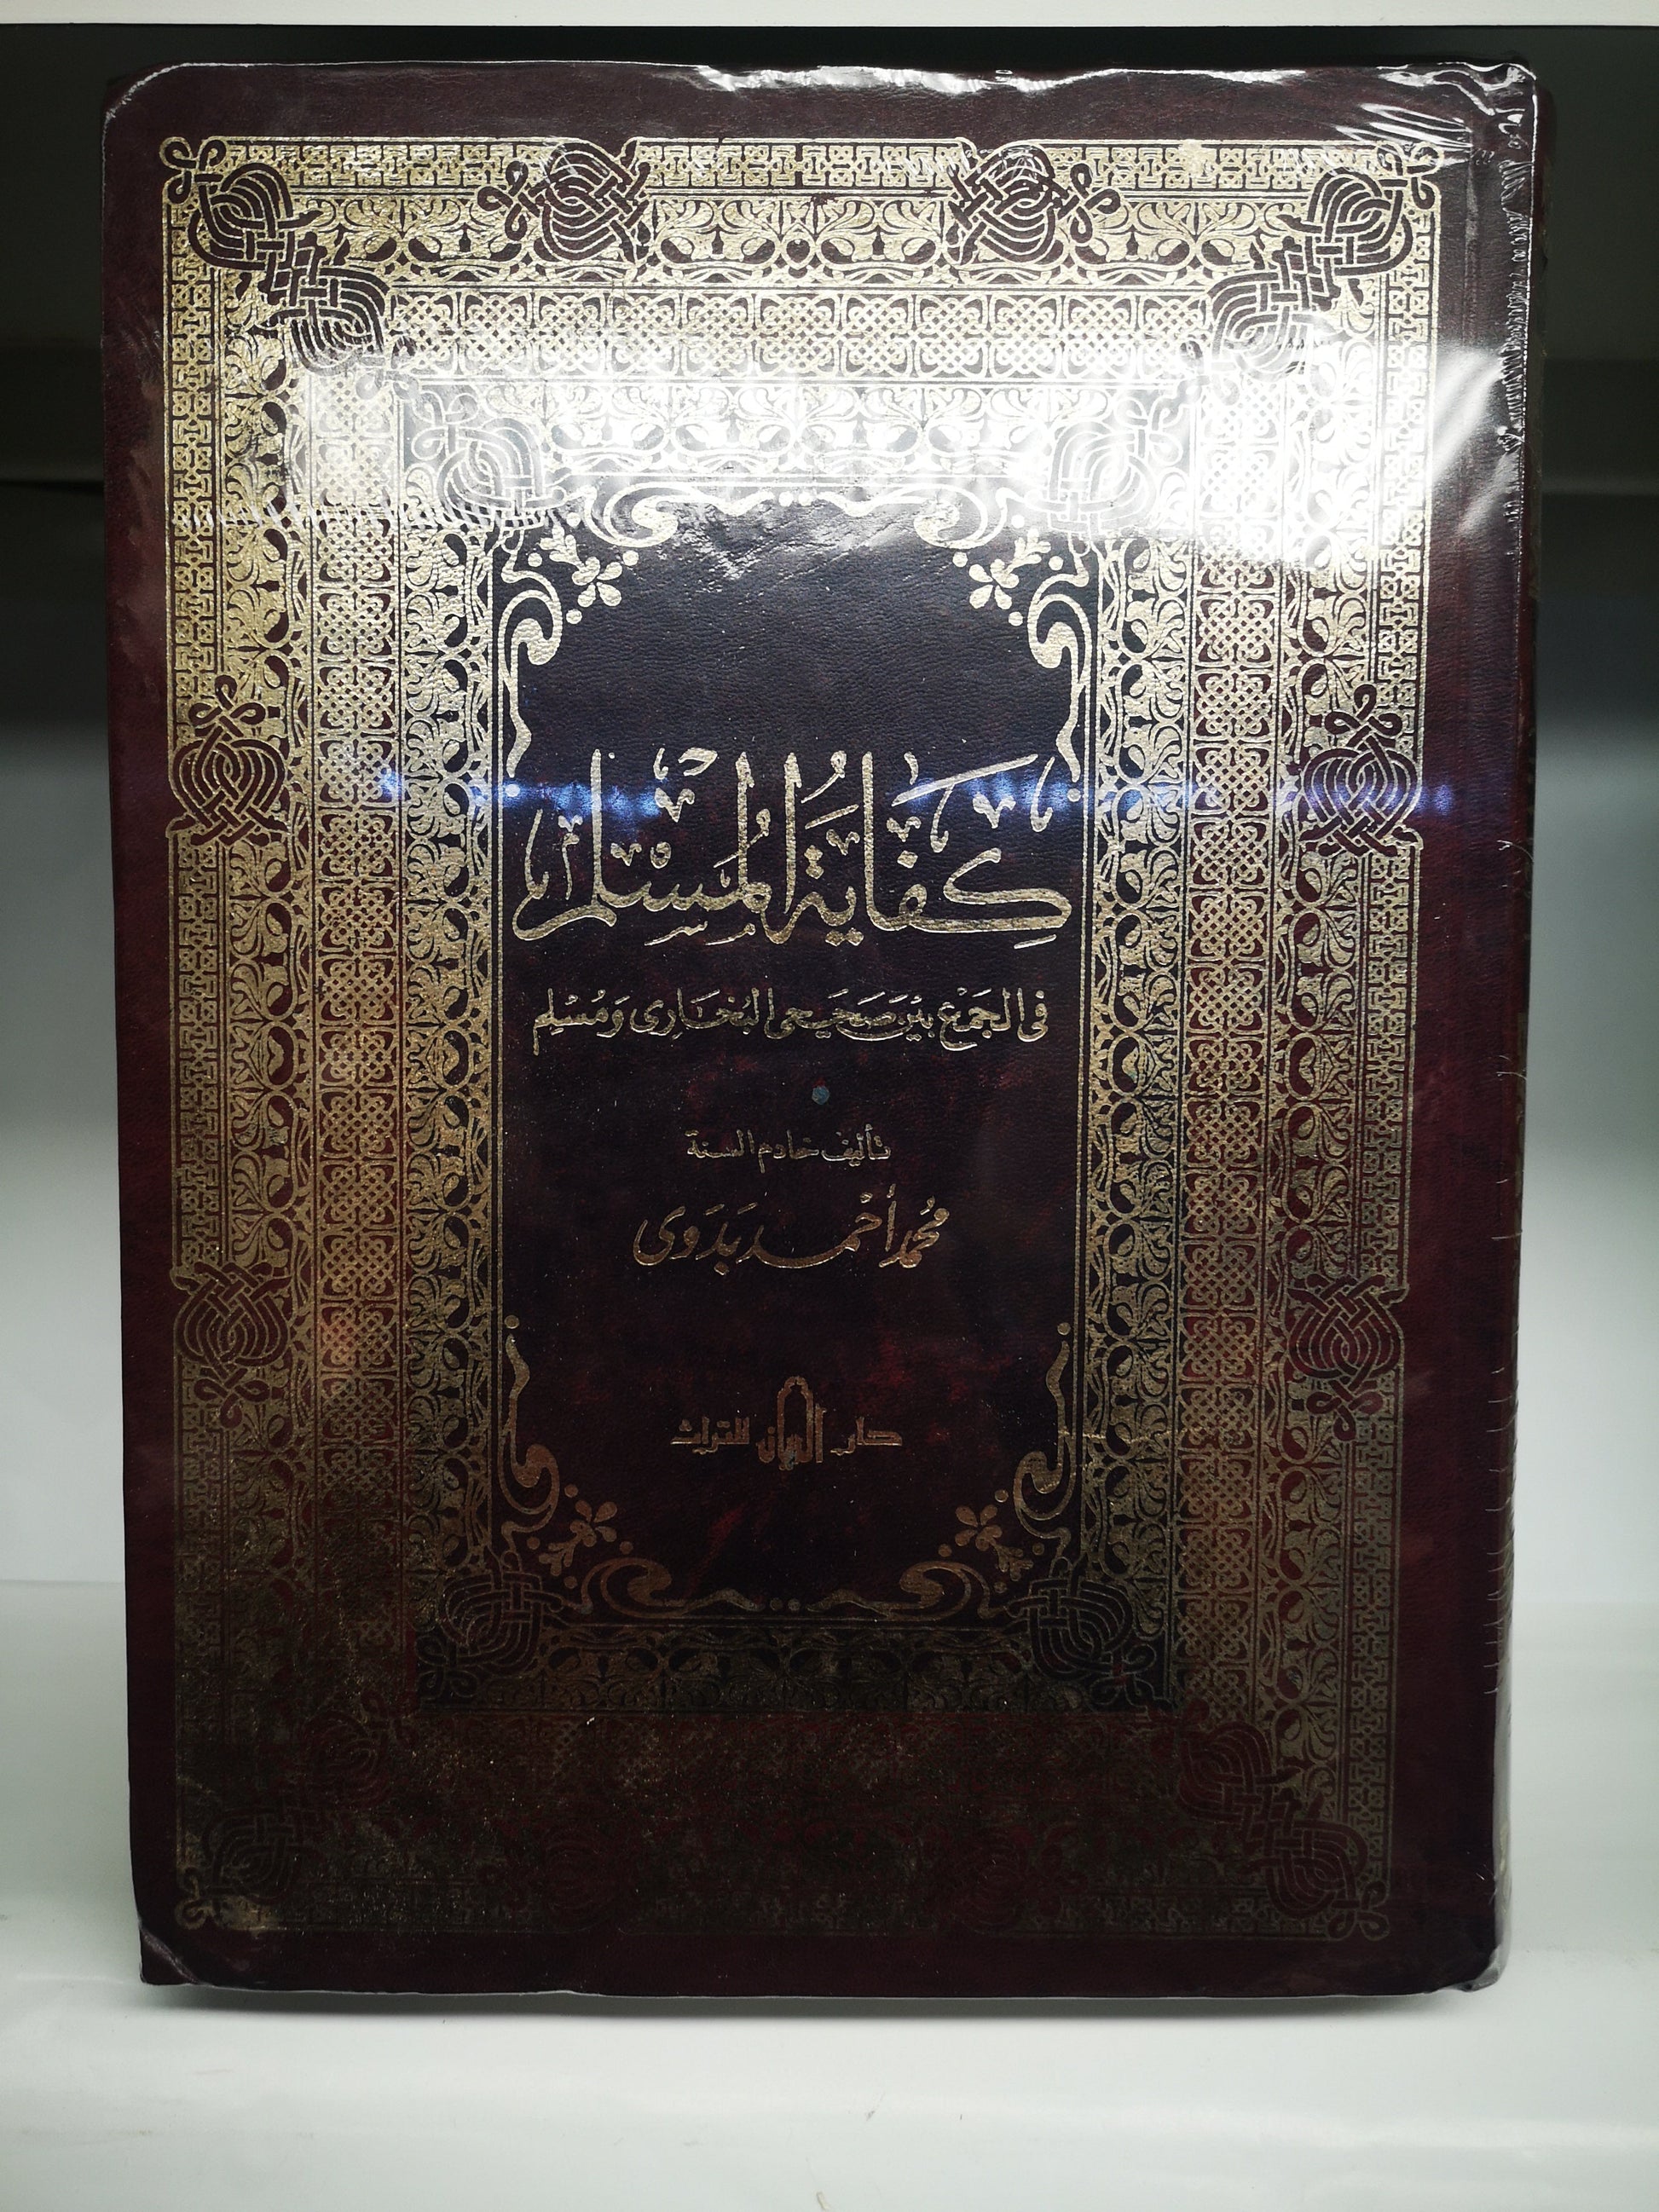 كِفَايَةُ المُسْلِم
فى الجَمْع بَيْنَ صَحِيحَى البُخَارِى وَمُسْلِم
تأليف خادم السنة
مُحَمَّد أحْمَد بَدَوِى
دار الريان للتراث